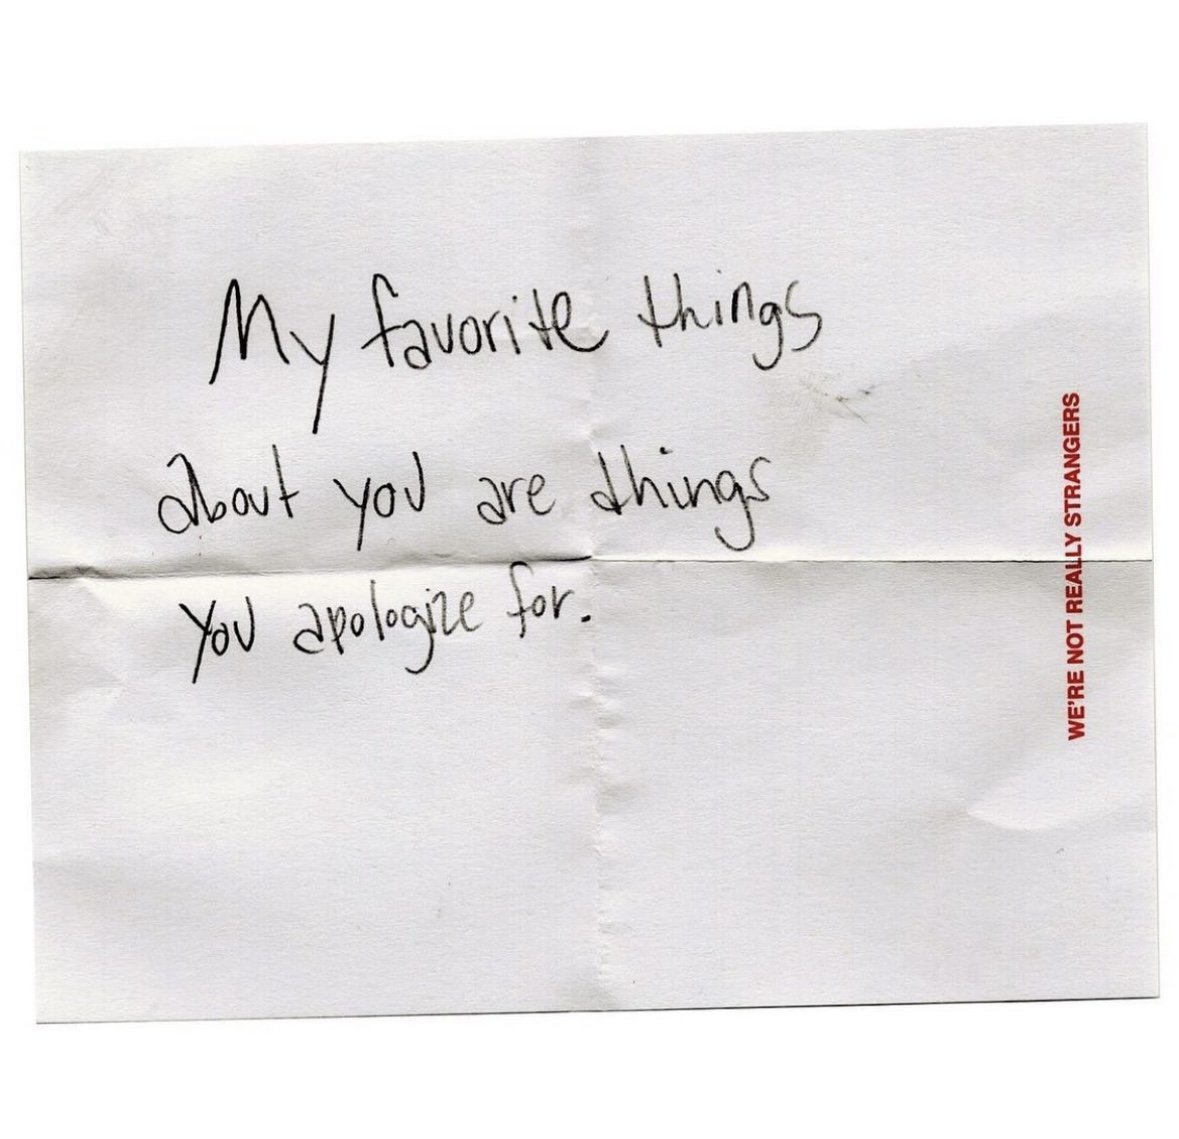 My favorite things
about you are things
you apologize for.
WE'RE NOT REALLY STRANGERS